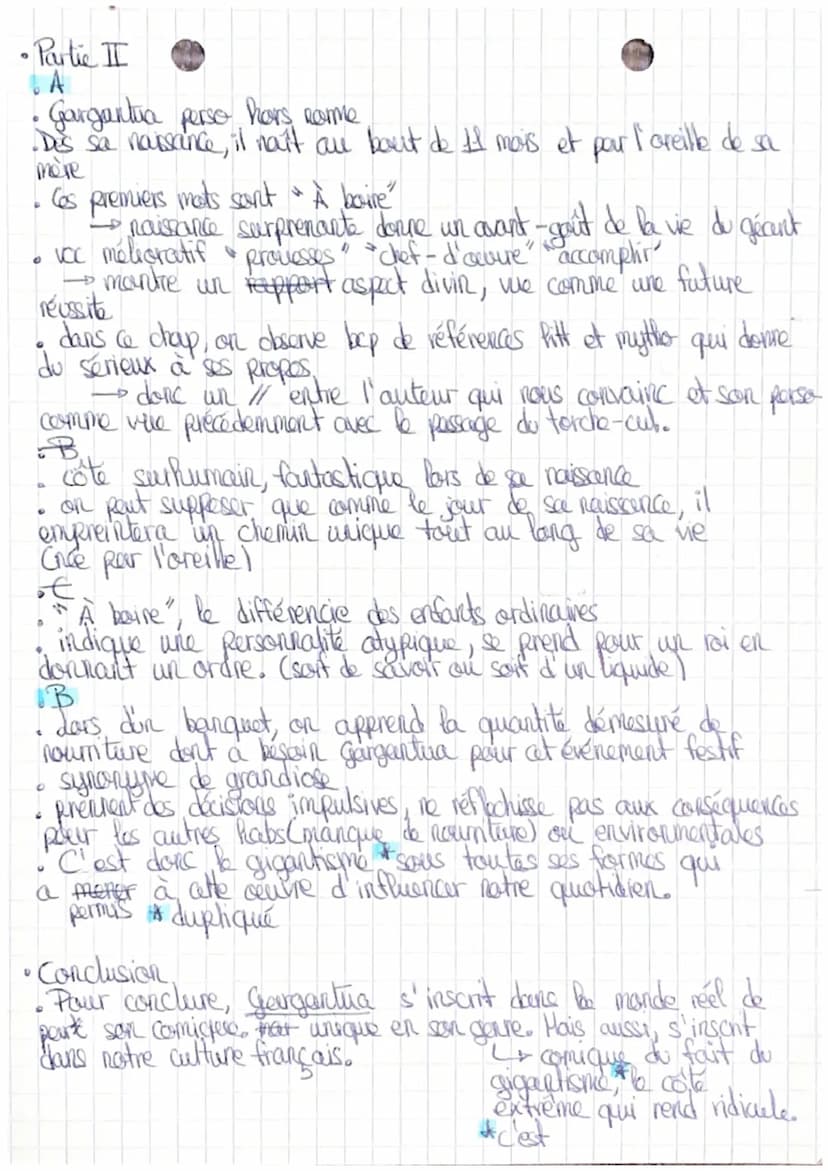 • Partie II
• A
• Gargantua perso hors norme
• Dès sa naissance, il naît au bout de 11 mois et par l'oreille de sa
mère
• Ces premiers mots sont "À boire"
→ naissance surprenante donne un avant-goût de la vie du géant
• voc mélioratif "prouesses" "chef-d'œuvre" "accomplir"
→ montre un rapport aspect divin, vue comme une future
réussite
• dans ce chap, on observe bcp de références litt et mytho qui donne
du sérieux à ses propos.
→ donc un // entre l'auteur qui nous convainc et son perso
comme vue précédemment avec le passage du torche-cul.
• B
• côté surhumain, fantastique lors de sa naissance
• on peut supposer que comme le jour de sa naissance, il
empreintera un chemin unique tout au long de sa vie
(née par l'oreille)
• C
• "À boire", le différencie des enfants ordinaires
• indique une personnalité atypique, se prend pour un roi en
donnant un ordre. (soif de savoir ou soif d'un liquide)
• B
• Lors d'un banquet, on apprend la quantité démesuré de
nourriture dont a besoin Gargantua pour cet événement festif
• synonyme de grandiose
• prennent des décisions impulsives, ne réflechisse pas aux conséquences
pour les autres habs (manque de nourriture) ou environmentales
• C'est donc le gigantisme * sous toutes ses formes qui
a mener à cette œuvre d'influencer notre quotidien.
permis * dupliqué
• Conclusion
• Pour conclure, Gargantua s'inscrit dans le monde réel de
part son unique en son genre. Mais aussi, s'inscrit
dans notre culture français.
↳ comique du fait du
gigantisme, * le côté
extrême qui rend ridicule.
* c'est